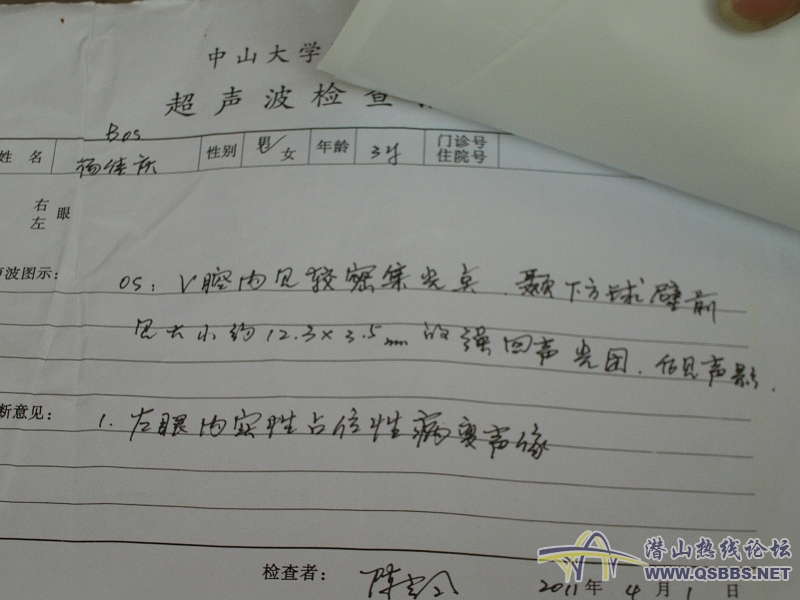 中山大学
超声波检查
Bos
姓名 杨佳庆 性别 男/女 年龄 3岁 门诊号
住院号
右
左 眼
声波图示: OS: V腔内见较密集光点,颞下方球壁前
见大小约12.3×3.5mm的强回声光团,伴见声影.
断意见: 1. 左眼内实性占位性病变声像
检查者: 2011年4月1日
潜山热线论坛
WWW.QSBBS.NET